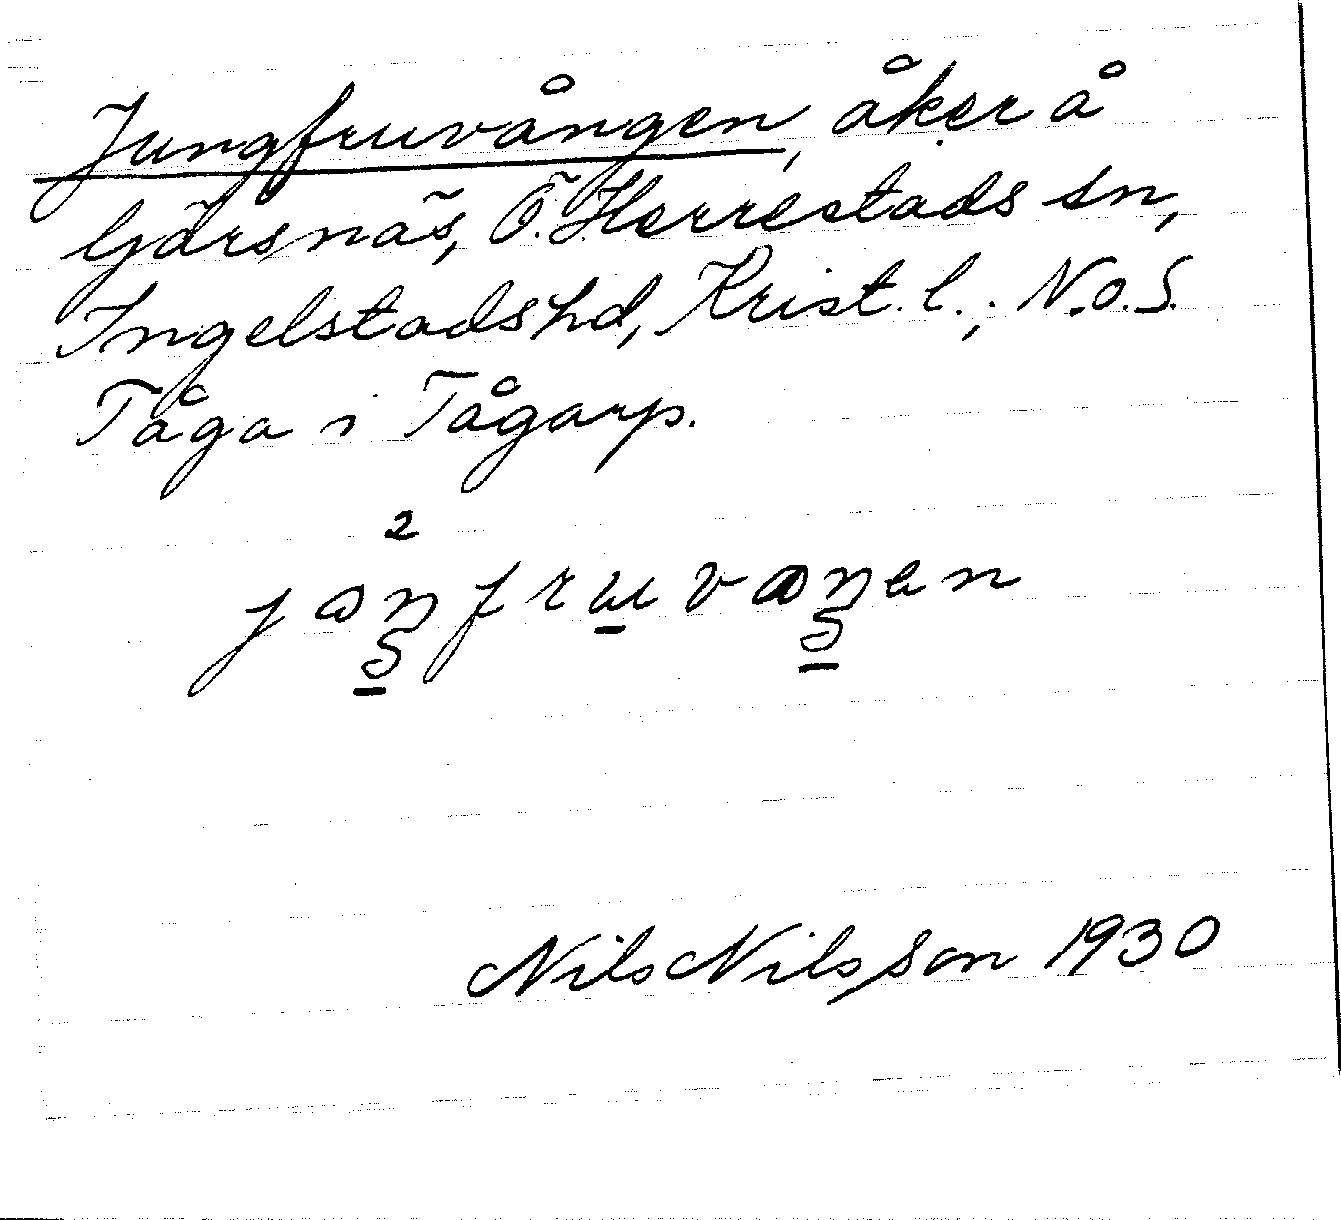 Jungfruvången, åker å
Gärsnäs, Ö. Herrestads sn,
Ingelstads hd, Krist. l., N.o.S.
Tåga i Tågarp.
Nils Nilsson 1930